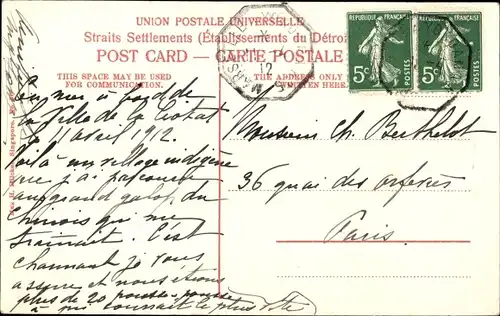 UNION POSTALE UNIVERSELLE
Straits Settlements (Etablissements du Détroit
POST CARD — CARTE POSTALE
THIS SPACE MAY BE USED
FOR COMMUNICATION.
THE ADDRESS ONLY
WRITTEN HERE.
REPUBLIQUE FRANÇAISE
5c
REPUBLIQUE FRANÇAISE
5c
12
En mer à bord de
la ville de la Ciotat
11 avril 1912
Voilà un village indigène
que j'ai parcouru
au grand galop du
Chinois qui me
trainait. C'est
charmant je vous
assure et nous étions
plus de 20 pousse-pousse
à qui courrait le plus vite
Monsieur Ch. Berthelot
36 quai des orfèvres
Paris